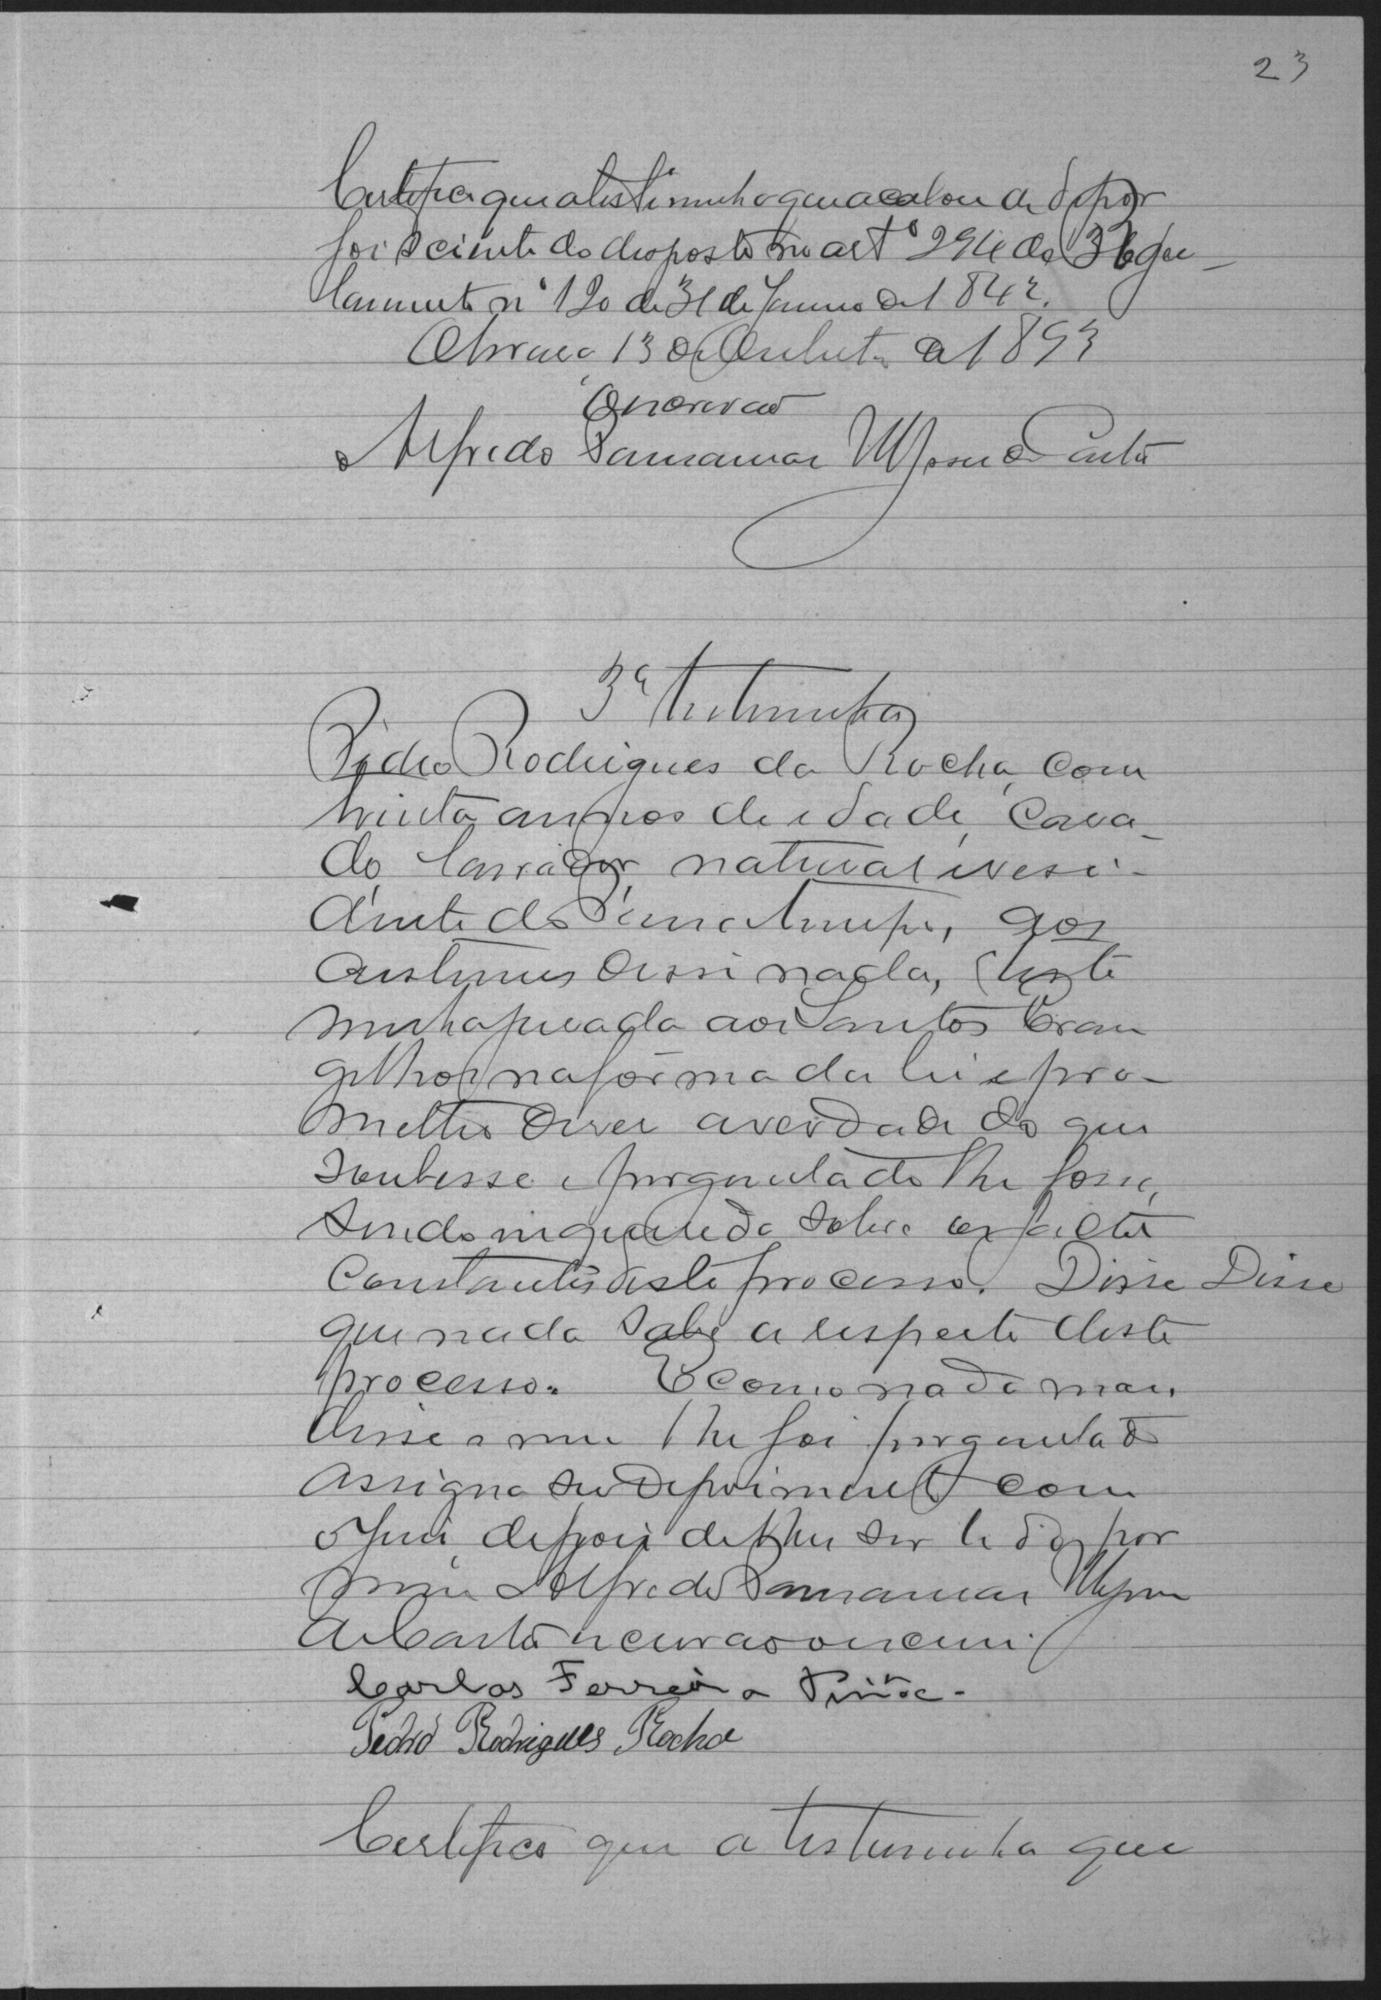 23
Certifico que a testimunha que acabou de depor
foi sciente do disposto no artº 294 do Regu-
lamento nº 120 de 31 de Janeiro de 1842.
13 de Outubro de 1893
O escrivão
Alfredo
3ª testimunha
Pedro Rodrigues da Rocha, com
trinta annos de idade, casa-
do lavrador, natural e resi-
dente do aos
custumes disse nada, teste
munha jurada aos Santos Evan
gelhos na forma da lei e pro-
metteo diser a verdade do que
soubesse e perguntado lhe fosse,
sendo inquerido sobre os factos
constantes deste processo. Disse Disse
que nada sabe a respeito deste
processo. E como nada mais
disse e nem lhe foi perguntado
assigna seu depoimento com
o juiz, depois de lhe ser lido por
mim Alfredo
de escrivão o escrevi.
Carlos Ferreira
Pedro Rodrigues Rocha
Certifico que a testimunha que